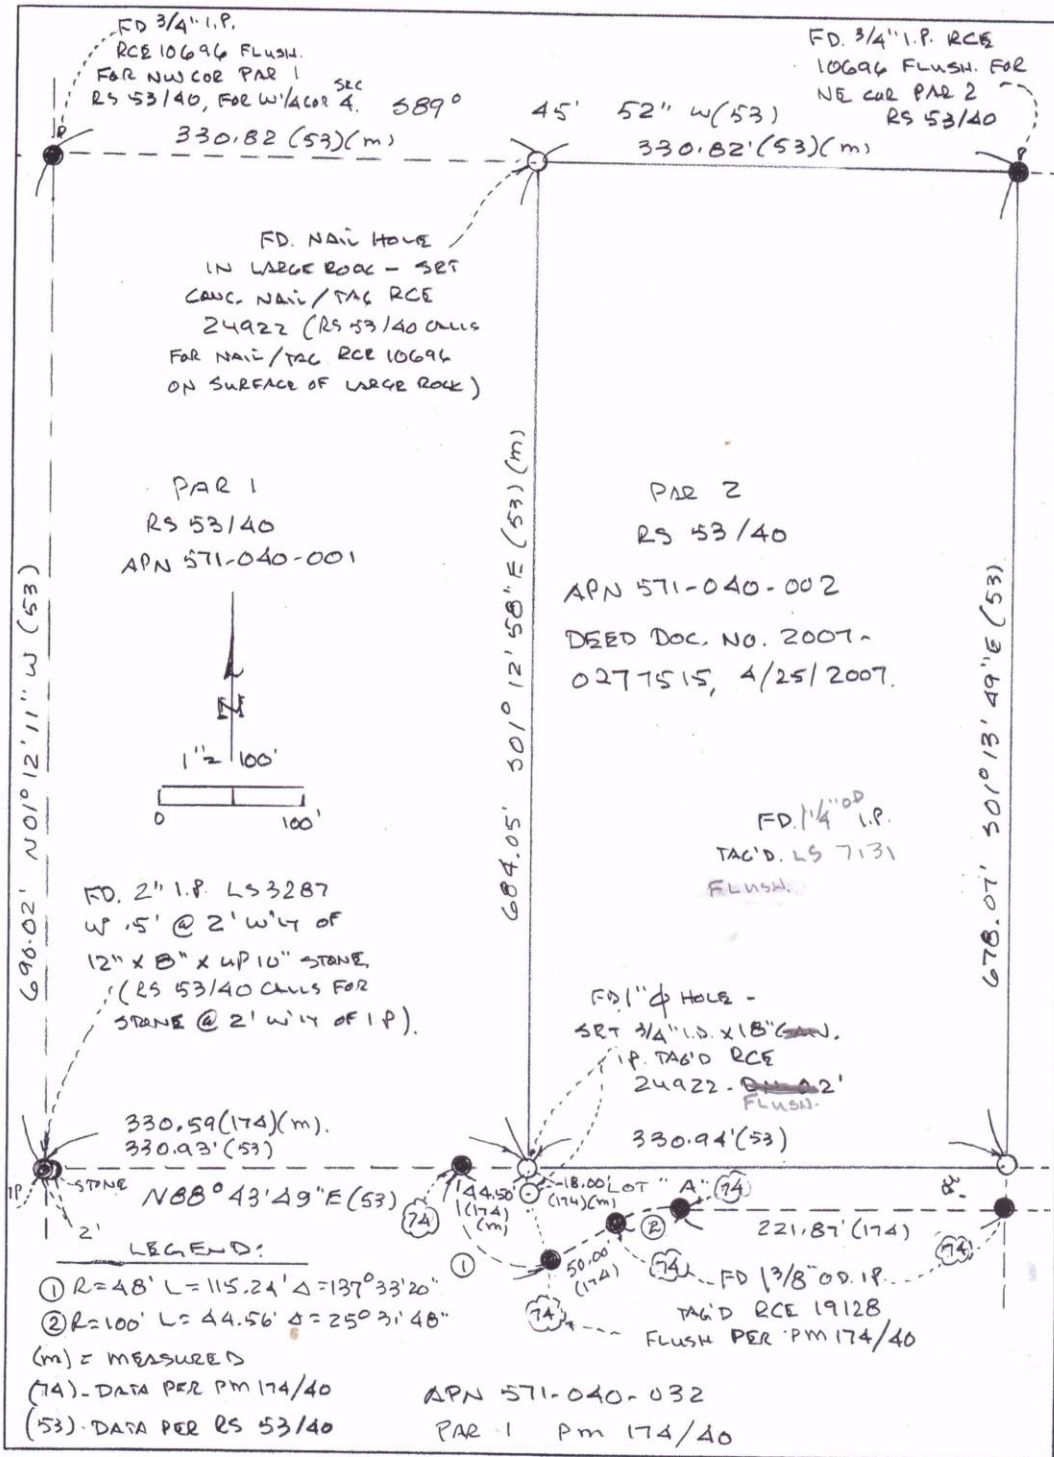 FD 3/4" I.P.
RCE 10696 FLUSH.
FOR NW COR PAR 1
RS 53/40, FOR W'/4 COR SEC 4.
FD. 3/4" I.P. RCE
10696 FLUSH. FOR
NE COR PAR 2
RS 53/40
S89° 45' 52" W (53)
330.82 (53)(m)
330.82' (53)(m)
FD. NAIL HOLE
IN LARGE ROCK - SET
CONC. NAIL/TAG RCE
24922 (RS 53/40 CALLS
FOR NAIL/TAG RCE 10696
ON SURFACE OF LARGE ROCK)
PAR 1
RS 53/40
APN 571-040-001
PAR 2
RS 53/40
APN 571-040-002
DEED DOC. NO. 2007-
0277515, 4/25/2007.
690.02' N01° 12' 11" W (53)
684.05' S01° 12' 58" E (53)(m)
678.07' S01° 13' 49" E (53)
N
1" = 100'
0 100'
FD. 1 1/4" OD I.P.
TAG'D. LS 7131
FLUSH.
FD. 2" I.P. LS 3287
UP .5' @ 2' W'LY OF
12" X 8" X UP 10" STONE
(RS 53/40 CALLS FOR
STONE @ 2' W'LY OF I.P).
FD 1" ф HOLE -
SET 3/4" I.D. X 18"
I.P. TAG'D RCE
24922. 2'
FLUSH.
330.59 (174)(m).
330.93' (53)
330.94' (53)
IP
STONE
2'
N88° 43' 49" E (53)
74
44.50'
(174)
(m)
18.00'
(174)(m)
LOT "A"
74
221.87' (174)
1
50.00
(174)
2
74
74
74
FD 1 3/8" O.D. I.P.
TAG'D RCE 19128
FLUSH PER PM 174/40
LEGEND:
① R=48' L=115.24' Δ=137° 33' 20"
② R=100' L=44.56' Δ=25° 31' 48"
(m) = MEASURED
(74) - DATA PER PM 174/40
(53) - DATA PER RS 53/40
APN 571-040-032
PAR 1 PM 174/40